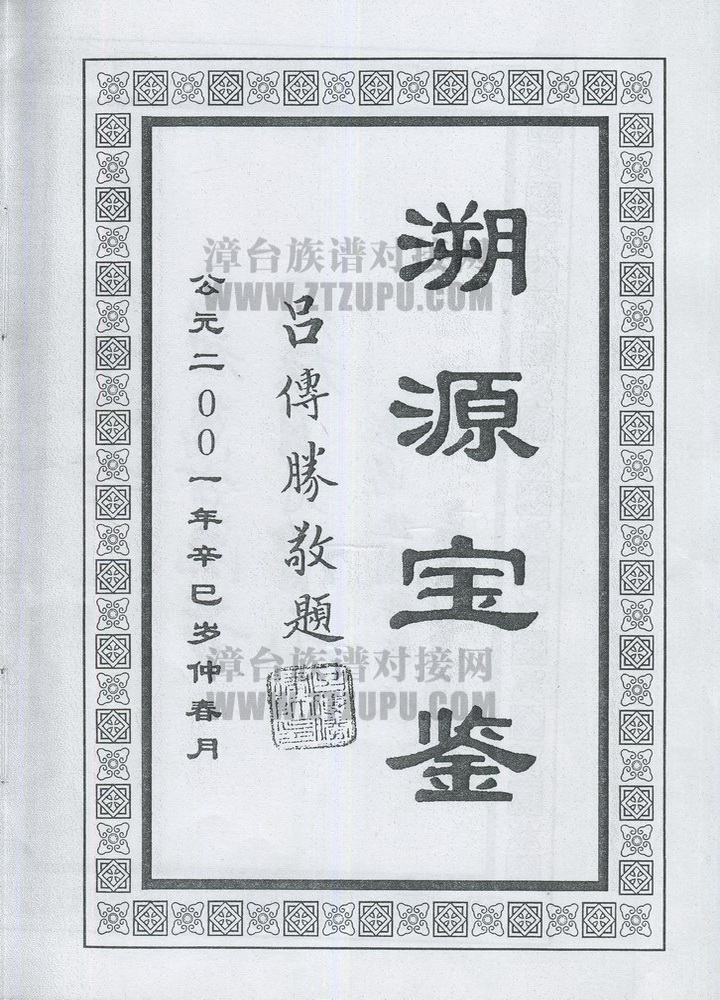 溯源宝鉴
吕傳勝敬題
公元二00一年辛巳岁仲春月
漳台族谱对接网
WWW.ZTZUPU.COM
漳台族谱对接网
WWW.ZTZUPU.COM